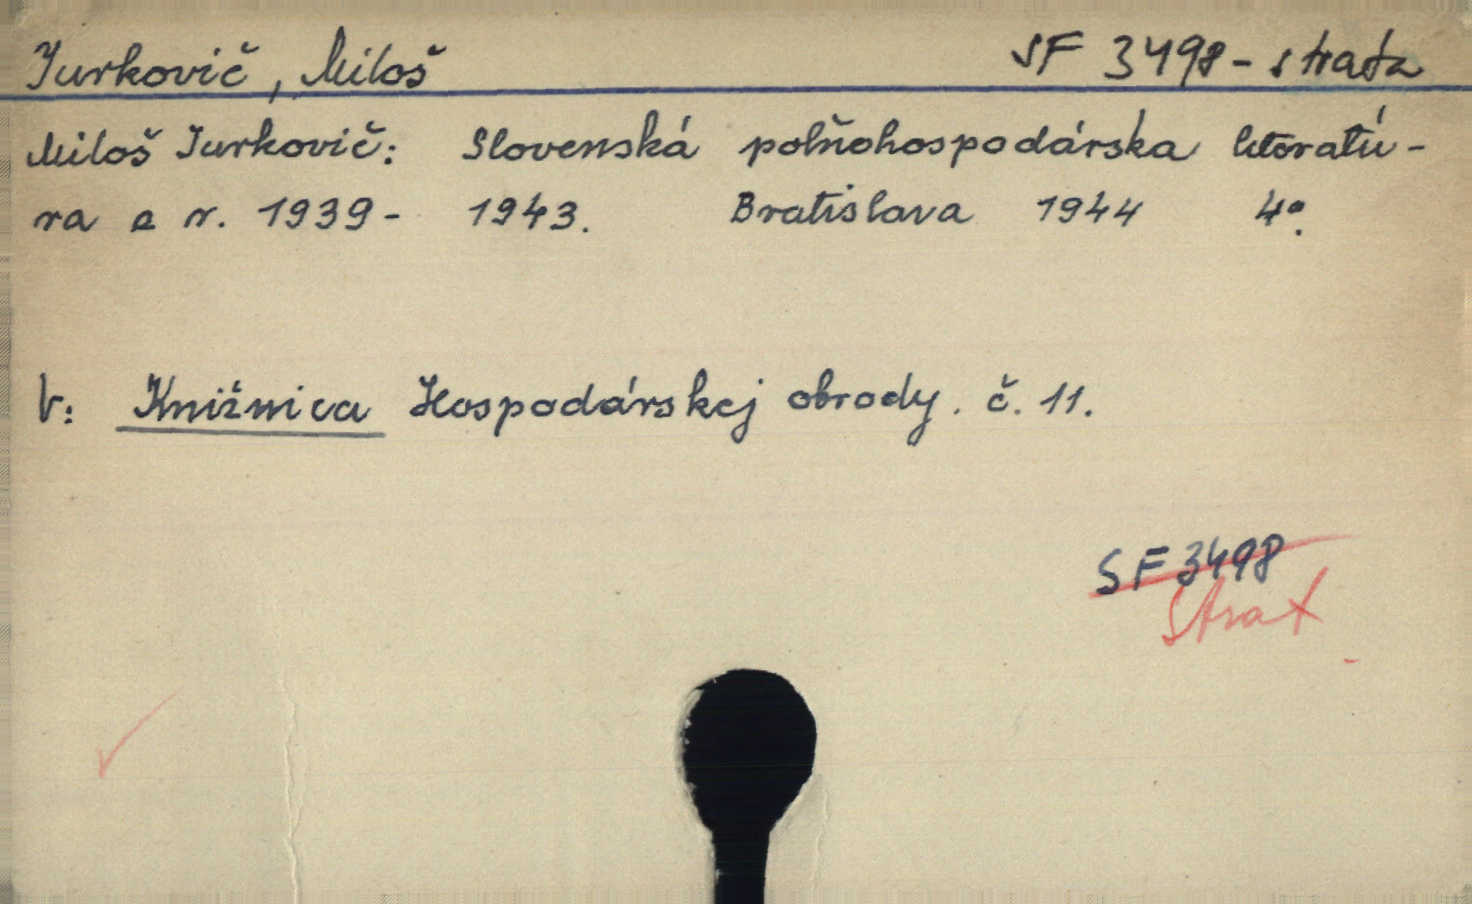 Jurkovič, Miloš SF 3498 - strata
Miloš Jurkovič: Slovenská polňohospodárska literatú-
ra z r. 1939- 1943. Bratislava 1944 4°.
V: Knižnica Hospodárskej obrody. č. 11.
SF 3498
Strat